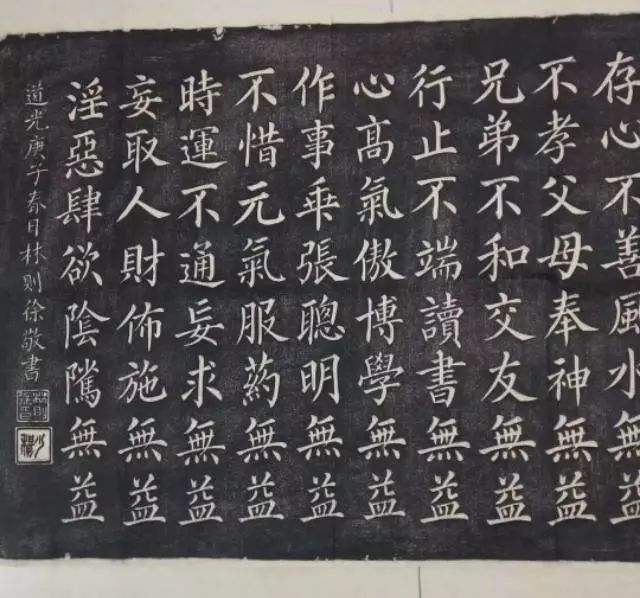 存心不善風水無益
不孝父母奉神無益
兄弟不和交友無益
行止不端讀書無益
心髙氣傲博學無益
作事乖張聰明無益
不惜元氣服葯無益
時運不通妄求無益
妄取人財佈施無益
淫惡肆欲陰騭無益
道光庚子春日林則徐敬書
林則徐印